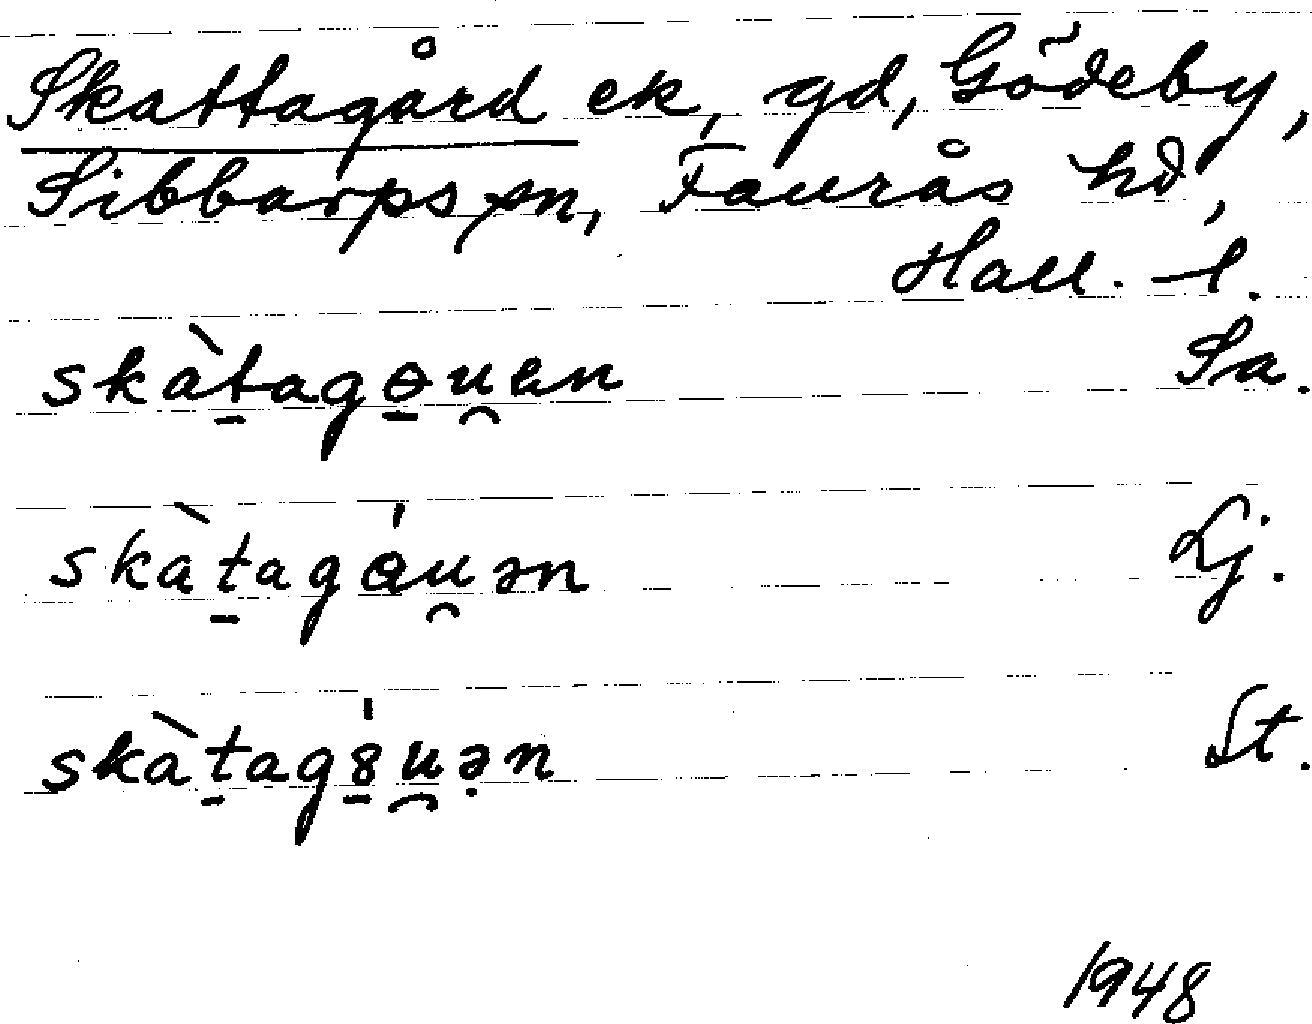 Skattagård ek, gd, Gödeby,
Sibbarps sn, Faurås hd,
Hall. l.
skàt̠agɵ̠u̯ən Sa.
skàt̠agɵ́u̯ən Lj.
skàt̠ag8̠́u̯ə̣n St.
1948